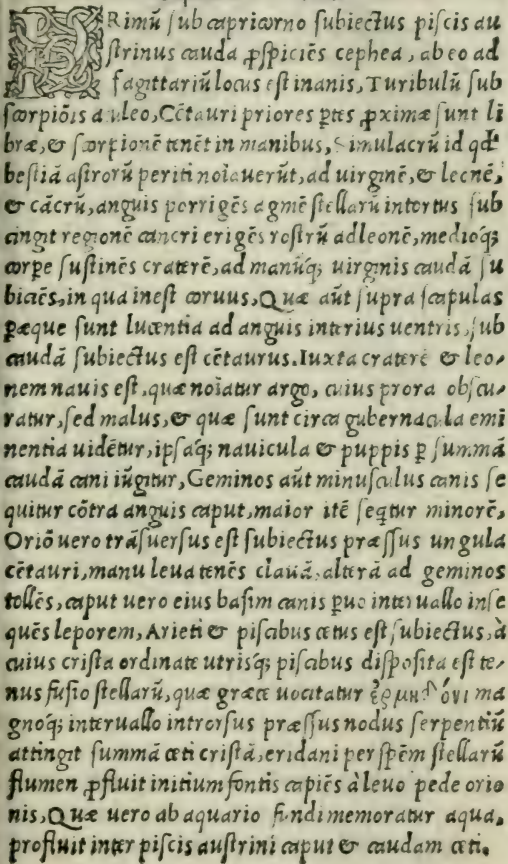 PRimũ sub capricorno subiectus piscis au
strinus cauda ꝓspiciẽs cephea, ab eo ad
sagittariũ locus est inanis, Turibulũ sub
scorpiõis aculeo, Cẽtauri priores ꝑtes ꝓximæ sunt li
bræ, & scorpionẽ tenẽt in manibus, Simulacrũ id qđ
bestiã astrorũ periti noĩauerũt, ad uirginẽ, & leonẽ,
& cãcrũ, anguis porrigẽs agmẽ stellarũ intortus sub
cingit regionẽ cancri erigẽs rostrũ ad leonẽ, medioq;
corpe sustinẽs craterẽ, ad manũq; uirginis caudã su
biciẽs, in qua inest coruus, Quæ aũt supra scapulas
ꝑæque sunt lucentia ad anguis interius uentris, sub
caudã subiectus est cẽtaurus. Iuxta craterẽ & leo,
nem nauis est, quæ noĩatur argo, cuius prora obscu,
ratur, sed malus, & quæ sunt circa gubernacula emi
nentia uidẽtur, ipsaq; nauicula & puppis ꝑ summã
caudã cani iũgitur, Geminos aũt minusculus canis se
quitur cõtra anguis caput, maior itẽ seqtur minorẽ,
Oriõ uero trãsuersus est subiectus præssus ungula
cẽtauri, manu leua tenẽs clauã, alterã ad geminos
tollẽs, caput uero eius basim canis ꝑuo interuallo inse
quẽs leporem, Arieti & piscibus cetus est subiectus, à
cuius crista ordinate utrisq; piscibus disposita est te,
nus fusio stellarũ, quæ græce uocitatur ma
gnoq; interuallo introrsus præssus nodus serpentiũ
attingit summã ceti cristã, eridani per spẽm stellarũ
flumen ꝓfluit initium fontis capiẽs à leuo pede orio
nis, Quæ uero ab aquario fundi memoratur aqua,
profluit inter piscis austrini caput & caudam ceti.